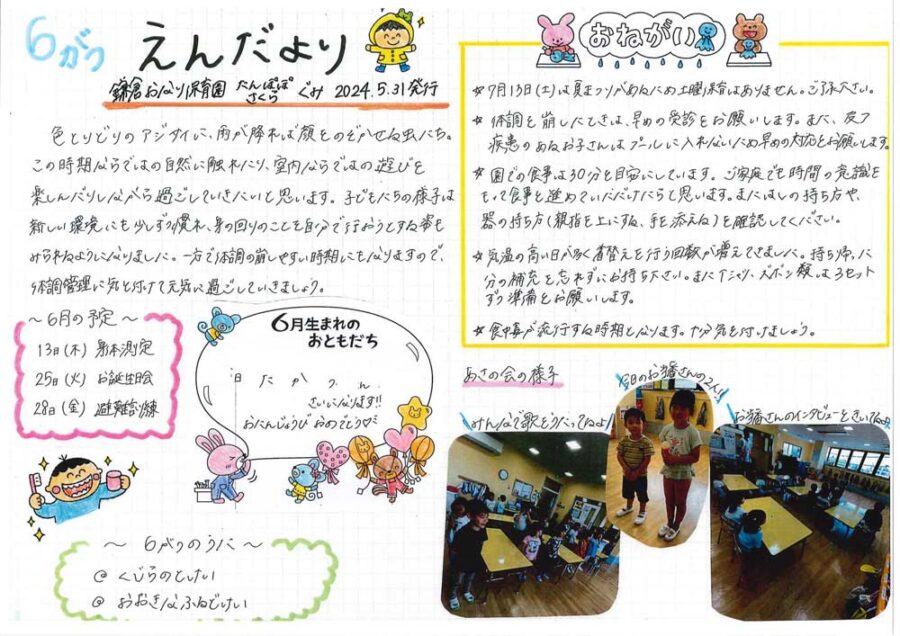 6がつ えんだより
鎌倉おなり保育園 たんぽぽ さくら ぐみ 2024.5.31発行
色とりどりのアジサイに、雨が降れば顔をのぞかせる虫たち。
この時期ならではの自然に触れたり、室内ならではの遊びを
楽しんだりしながら過ごしていきたいと思います。子どもたちの様子は
新しい環境にも少しずつ慣れ、身の回りのことを自分で行おうとする姿も
みられるようになりました。一方で体調の崩しやすい時期にもなりますので、
体調管理に気を付けて元気に過ごしていきましょう。
〜6月の予定〜
13日(木) 身体測定
25日(火) お誕生日会
28日(金) 避難訓練
6月生まれの
おともだち
さいになります!!
おたんじょうび おめでとう♡
〜 6がつのうた 〜
@ くじらのとけい
@ おおきなふねでっかい
おねがい
☆ 7月13日(土)は夏まつりがあるため土曜保育はありません。ご了承下さい。
☆ 体調を崩したときは、早めの受診をお願いします。また、皮フ
疾患のあるお子さんはプールに入れないため早めの対応をお願いします。
☆ 園での食事は30分を目安にしています。ご家庭でも時間の意識を
もって食事を進めていただけたらと思います。またはしの持ち方や、
器の持ち方(親指を上にする、手を添える)を確認してください。
☆ 気温の高い日が多く着替えを行う回数が増えてきました。持ち帰った
分の補充を忘れずにお持ち下さい。またTシャツ、ズボン類は3セット
ずつ準備をお願いします。
☆ 食中毒が流行する時期となります。十分気を付けましょう。
あさの会の様子
今日のお当番さんの2人!!
みんなで歌をうたってるよ♪
お当番さんのインタビューをきいてるよ